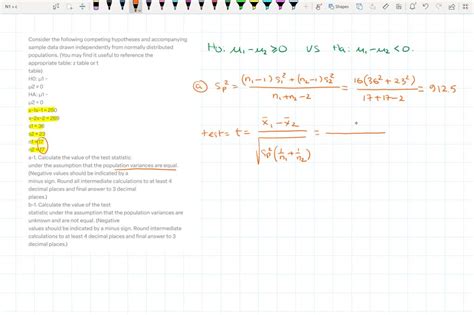 Consider the following competing hypotheses and accompanying
sample data drawn independently from normally distributed
populations. (You may find it useful to reference the
appropriate table: z table or t
table)
H0: μ1 -
μ2 ≥ 0
HA: μ1 -
μ2 < 0
a-1. Calculate the value of the test statistic
under the assumption that the population variances are equal.
(Negative values should be indicated by a
minus sign. Round all intermediate calculations to at least 4
decimal places and final answer to 3 decimal
places.)
b-1. Calculate the value of the test
statistic under the assumption that the population variances are
unknown and are not equal. (Negative
values should be indicated by a minus sign. Round intermediate
calculations to at least 4 decimal places and final answer to 3
decimal places.)
H0: μ1-μ2 ≥0 VS Ha: μ1-μ2 <0.
a Sp² = (n1-1)S1² + (n2-1)S2² / n1+n2-2 = 16(36²+23²) / 17+17-2 = 912.5
test= t = x̄1 - x̄2 / √Sp²(1/n1 + 1/n2) =
Shapes